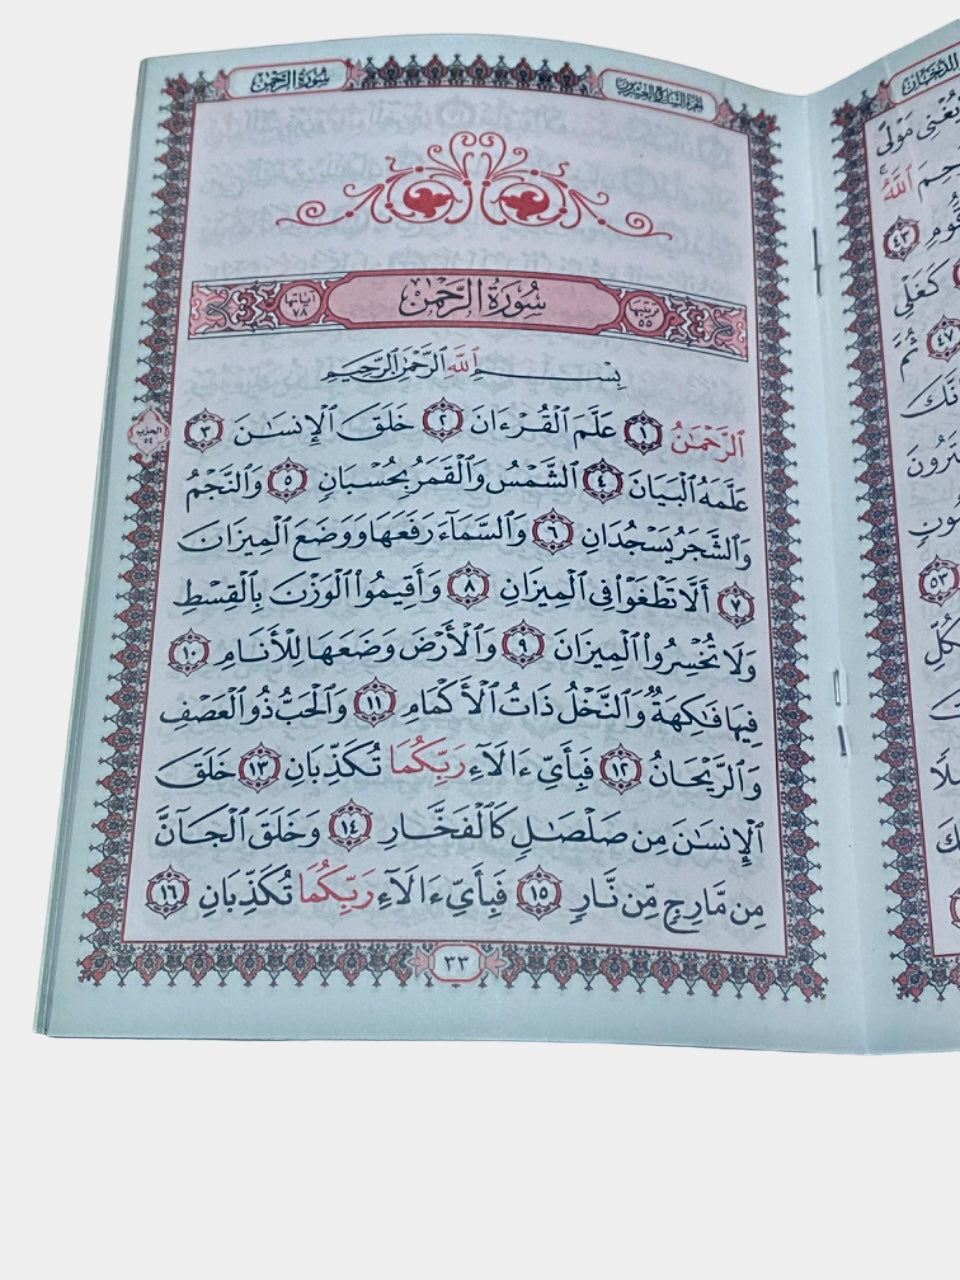 الدخان
يُغْنِى مَوْلًى
ٱللَّهُ
٤٣
كَغَلْىِ
٤٧ ثُمَّ
٥٣
سُورَةُ الرَّحْمٰن
سُورَةُ الرَّحْمٰن
ترتيبها ٥٥
آياتها ٧٨
بِسْمِ ٱللَّهِ ٱلرَّحْمَٰنِ ٱلرَّحِيمِ
ٱلرَّحْمَٰنُ ١ عَلَّمَ ٱلْقُرْءَانَ ٢ خَلَقَ ٱلْإِنسَٰنَ ٣
عَلَّمَهُ ٱلْبَيَانَ ٤ ٱلشَّمْسُ وَٱلْقَمَرُ بِحُسْبَانٍ ٥ وَٱلنَّجْمُ
وَٱلشَّجَرُ يَسْجُدَانِ ٦ وَٱلسَّمَآءَ رَفَعَهَا وَوَضَعَ ٱلْمِيزَانَ
٧ أَلَّا تَطْغَوْا۟ فِى ٱلْمِيزَانِ ٨ وَأَقِيمُوا۟ ٱلْوَزْنَ بِٱلْقِسْطِ
وَلَا تُخْسِرُوا۟ ٱلْمِيزَانَ ٩ وَٱلْأَرْضَ وَضَعَهَا لِلْأَنَامِ ١٠
فِيهَا فَٰكِهَةٌ وَٱلنَّخْلُ ذَاتُ ٱلْأَكْمَامِ ١١ وَٱلْحَبُّ ذُو ٱلْعَصْفِ
وَٱلرَّيْحَانُ ١٢ فَبِأَىِّ ءَالَآءِ رَبِّكُمَا تُكَذِّبَانِ ١٣ خَلَقَ
ٱلْإِنسَٰنَ مِن صَلْصَٰلٍ كَٱلْفَخَّارِ ١٤ وَخَلَقَ ٱلْجَآنَّ
مِن مَّارِجٍ مِّن نَّارٍ ١٥ فَبِأَىِّ ءَالَآءِ رَبِّكُمَا تُكَذِّبَانِ ١٦
الحزب ٥٤
٣٣